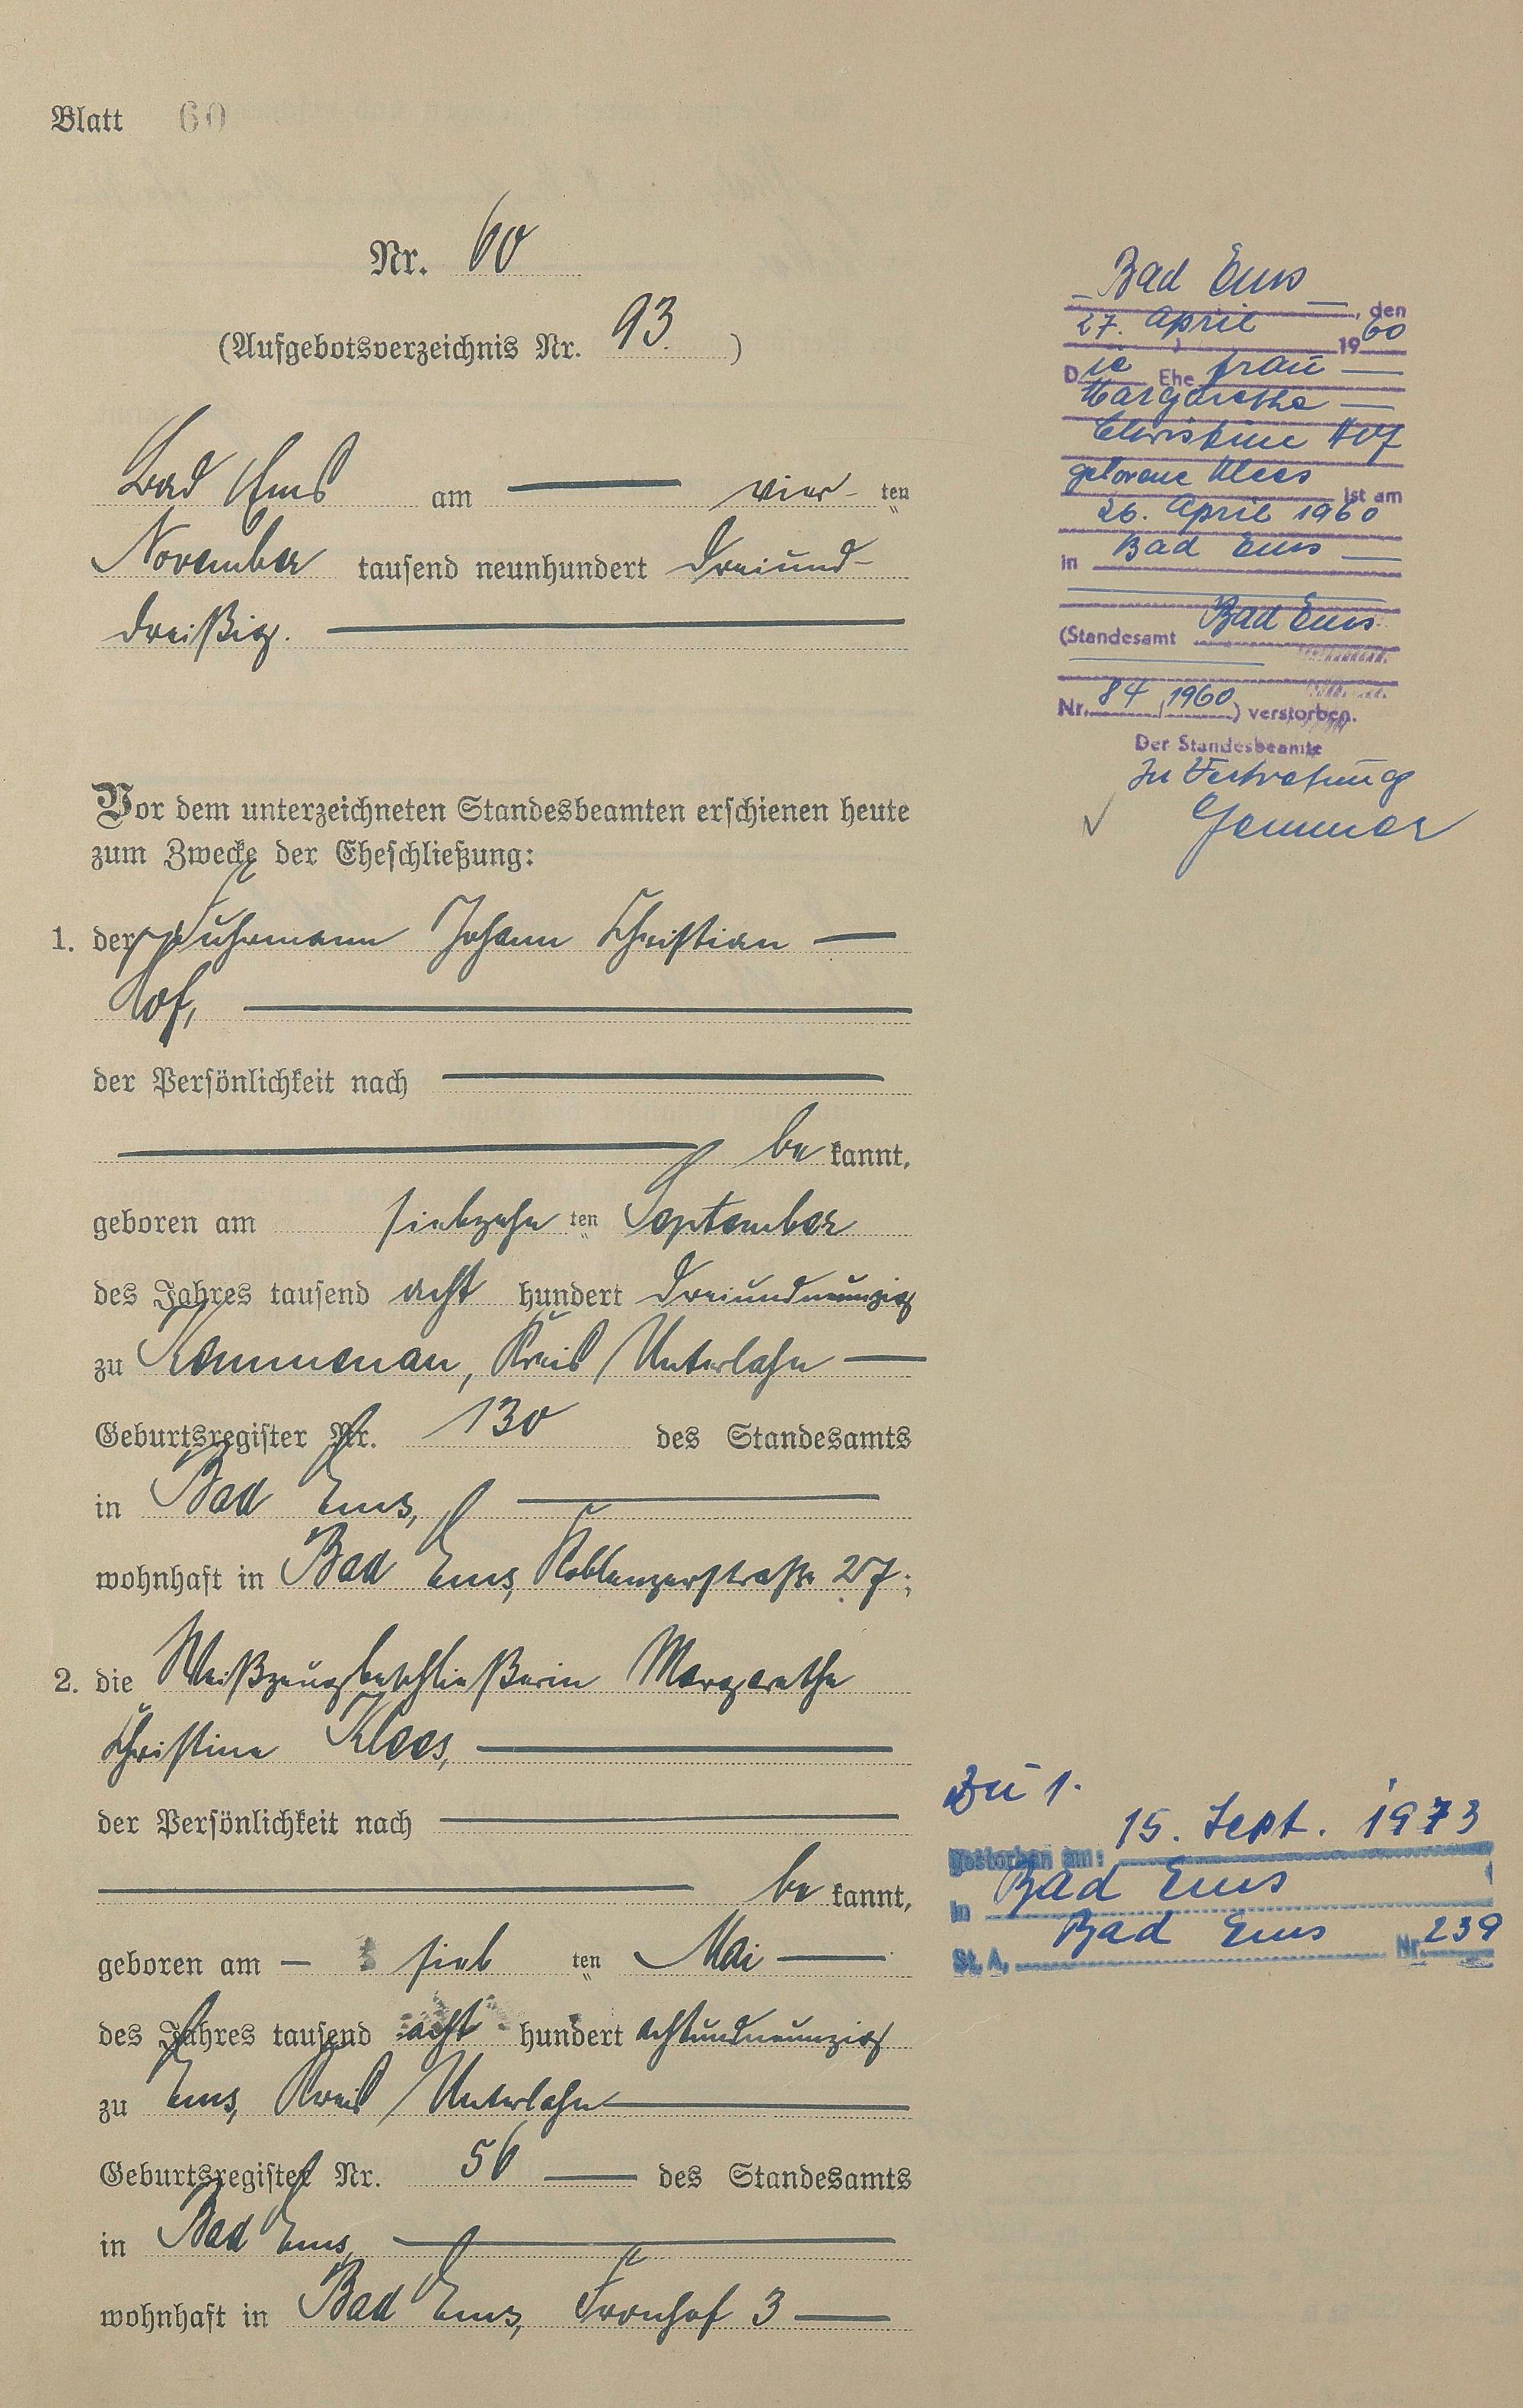 Blatt 60
Nr. 60
(Aufgebotsverzeichnis Nr. 93.)
Bad Ems am vier- ten
November tausend neunhundert dreiund-
dreißig.
Vor dem unterzeichneten Standesbeamten erschienen heute
zum Zwecke der Eheschließung:
1. der Fuhrmann Johann Christian
Hof,
der Persönlichkeit nach
be kannt,
geboren am siebzehn ten September
des Jahres tausend acht hundert dreiundneunzig
zu Kemmenau, Kreis Unterlahn
Geburtsregister Nr. 130 des Standesamts
in Bad Ems,
wohnhaft in Bad Ems, Koblenzerstraße 27;
2. die Weißzeugbeschließerin Margarethe
Christine Klees,
der Persönlichkeit nach
be kannt,
geboren am sieb ten Mai
des Jahres tausend acht hundert achtundneunzig
zu Ems, Kreis Unterlahn
Geburtsregister Nr. 56 des Standesamts
in Bad Ems,
wohnhaft in Bad Ems, Fronhof 3
Bad Ems, den
27. April 1960
Die Ehefrau
Margarethe
Christine Hof
geborene Klees ist am
26. April 1960
in Bad Ems
(Standesamt Bad Ems
Nr. 84/1960) verstorben.
Der Standesbeamte
In Vertretung
Zu 1.
gestorben am: 15. Sept. 1973
in Bad Ems
St. A. Bad Ems Nr. 239